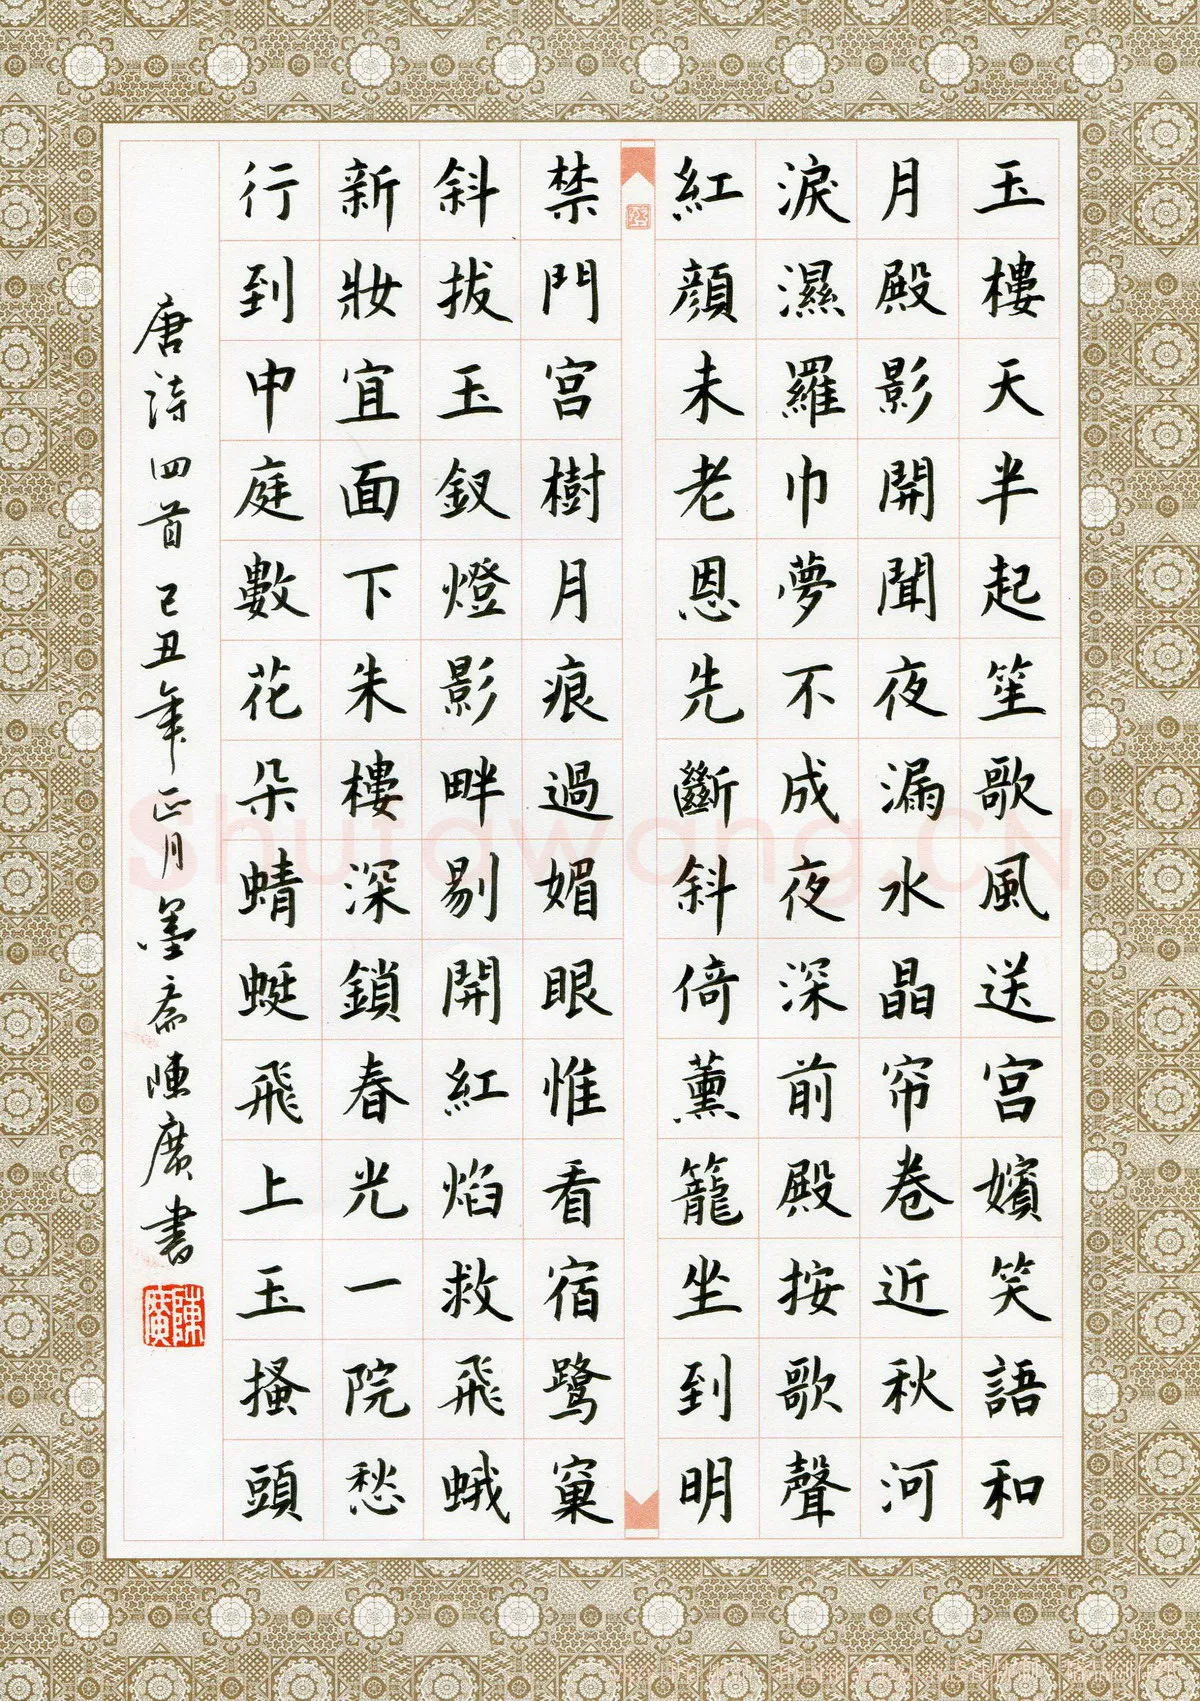 玉樓天半起笙歌風送宮嬪笑語和
月殿影開聞夜漏水晶帘卷近秋河
淚濕羅巾夢不成夜深前殿按歌聲
紅顏未老恩先斷斜倚薰籠坐到明
禁門宮樹月痕過媚眼惟看宿鹭窠
斜拔玉釵燈影畔剔開紅焰救飛蛾
新妝宜面下朱樓深鎖春光一院愁
行到中庭數花朵蜻蜓飛上玉搔頭
唐詩四首己丑年正月墨斋陳廣書
陳廣
Shufawang.CN